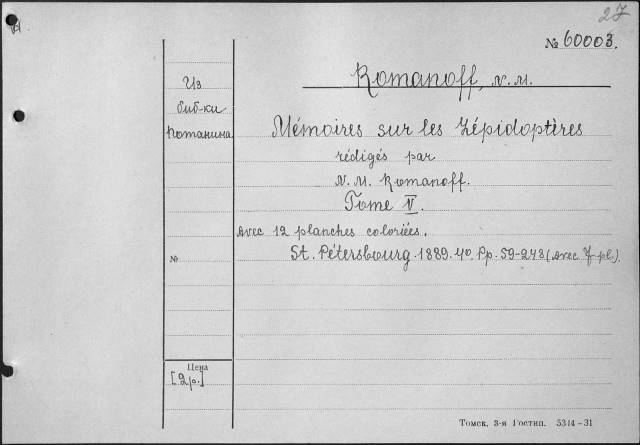 27
№ 60003.
Romanoff, N. M.
Из
биб-ки
Потанина
Mémoires sur les Lépidoptères
rédigés par
N. M. Romanoff.
Tome V.
Avec 12 planches coloriées.
№
St. Pétersbourg. 1889. 4º. Pp. 59-248 (avec 7 pl.).
Цена
[2р.]
Томск, 3-я Гостип. 5314-31